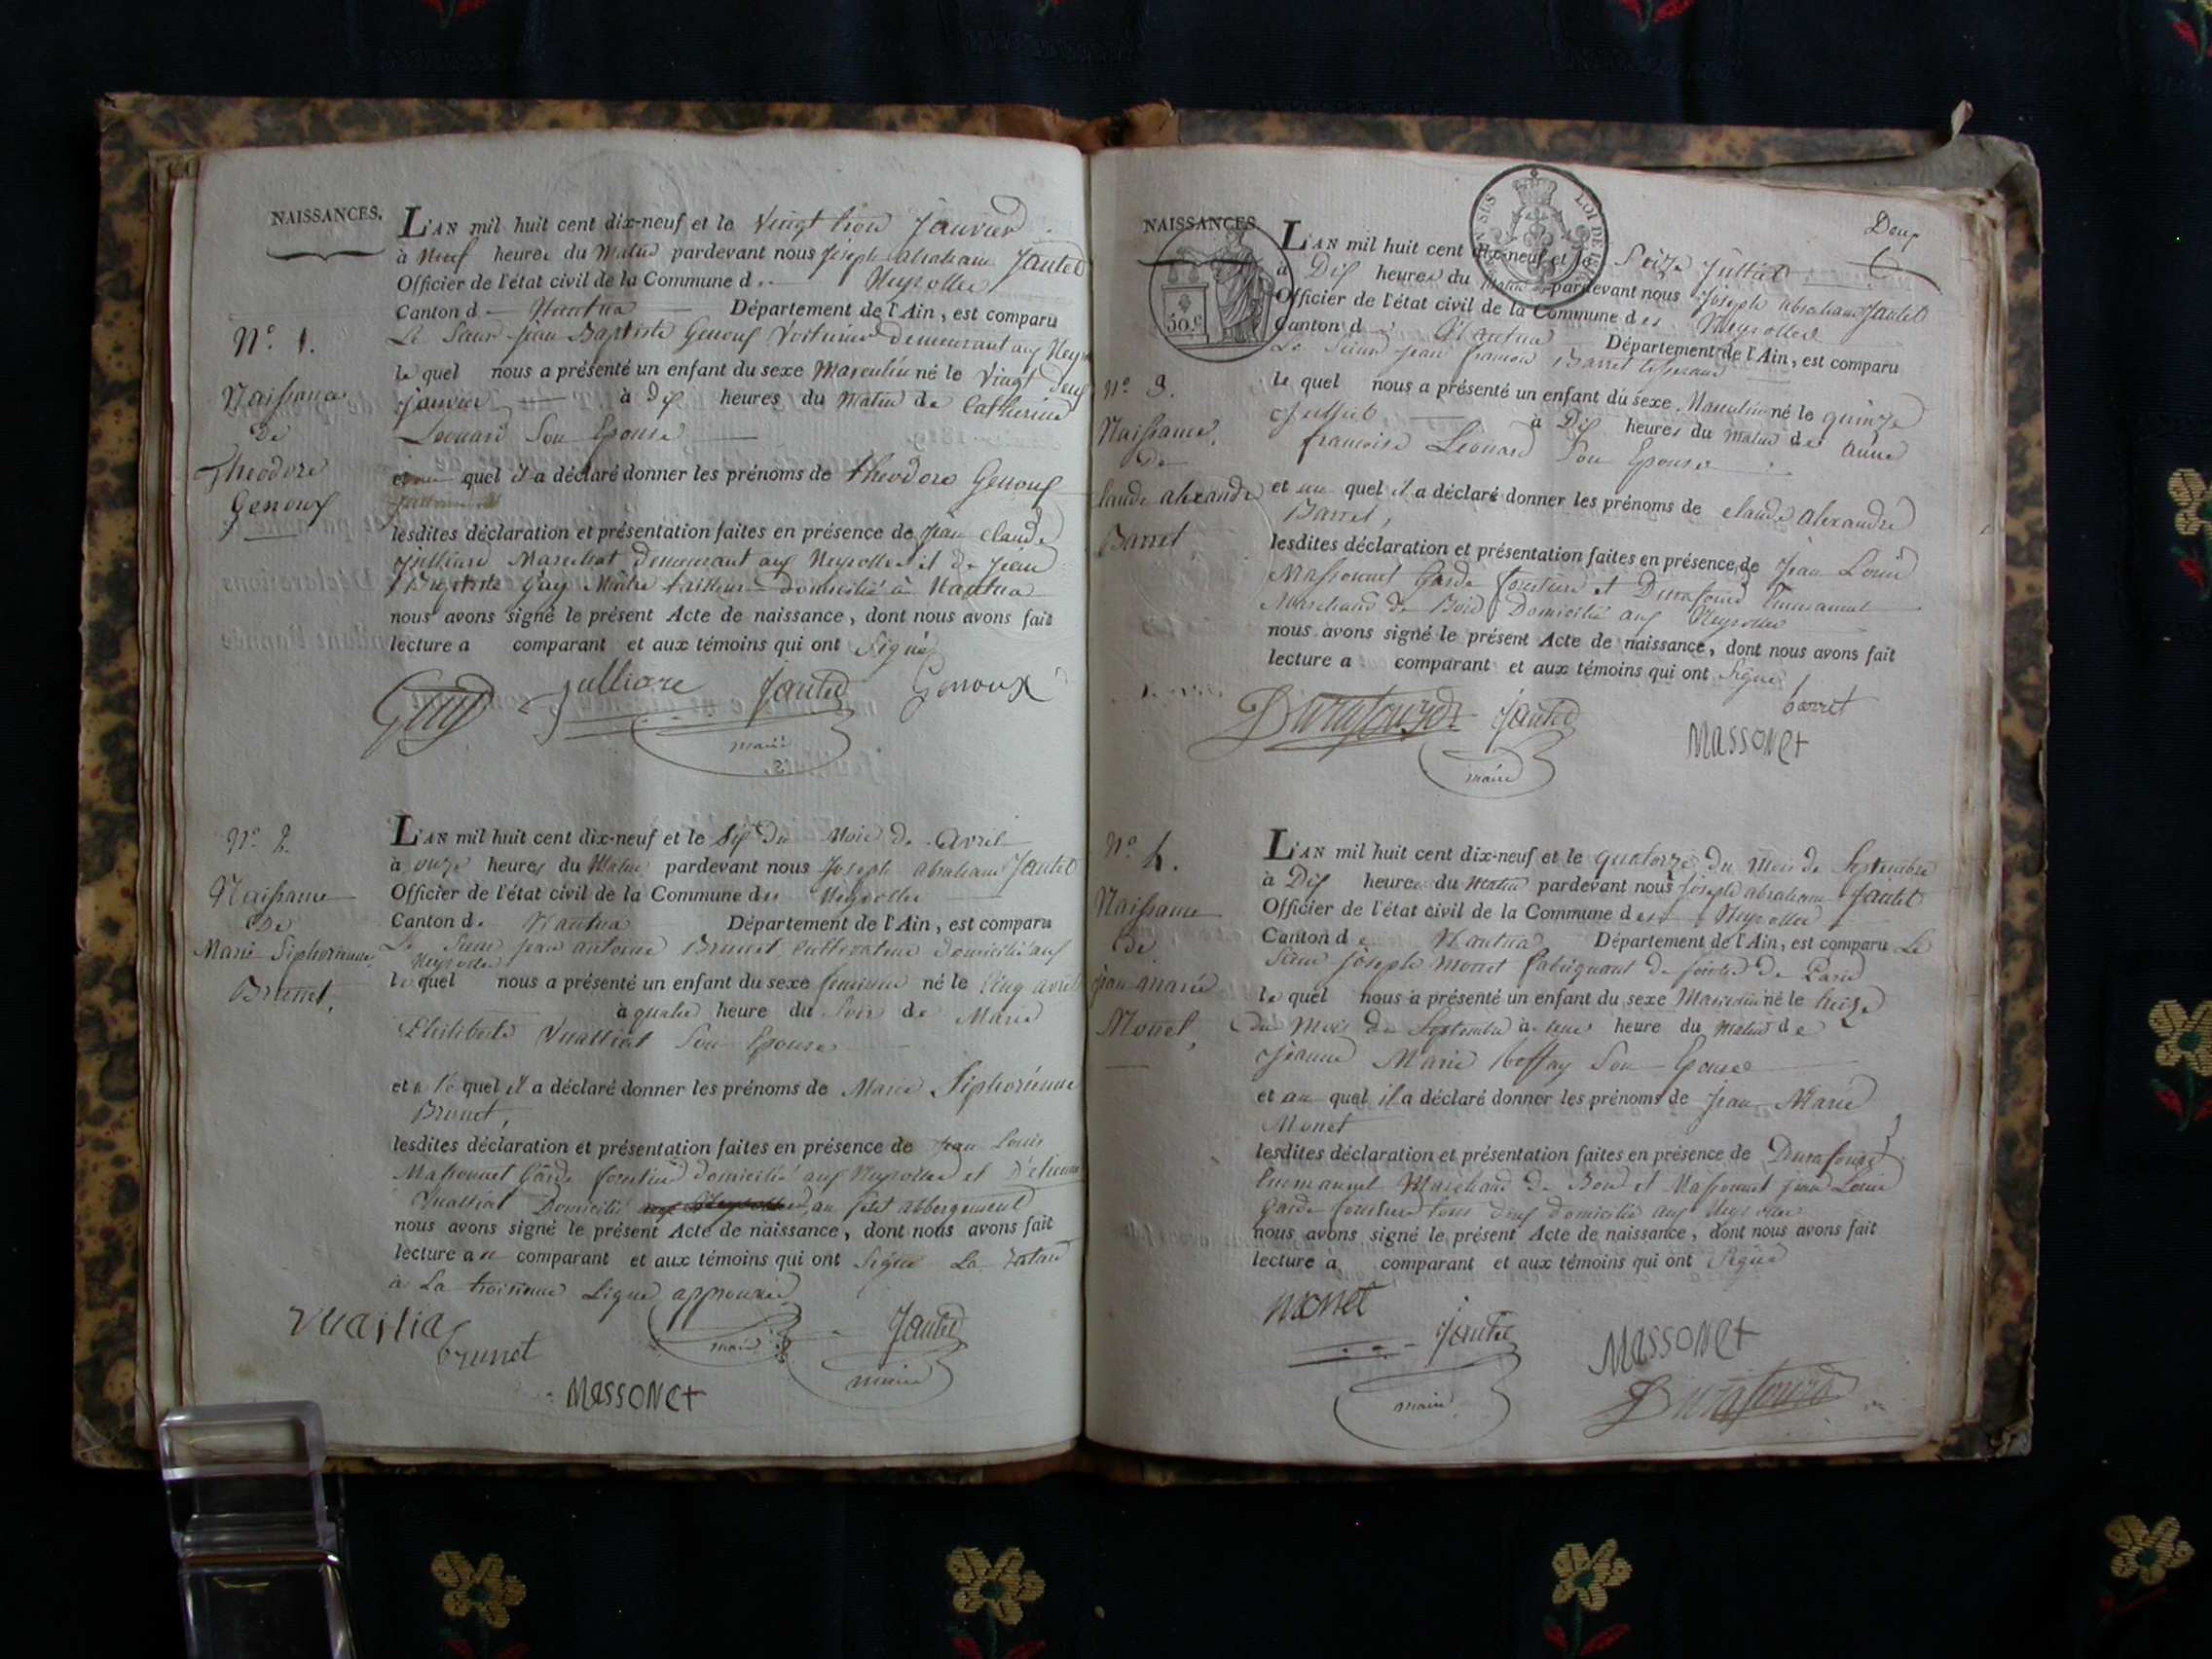 NAISSANCES.
L'AN mil huit cent dix-neuf et le vingt trois Janvier
à Neuf heures du Matin pardevant nous Joseph abraham Jantet
Officier de l'état civil de la Commune d Neyrolles
Canton d Nantua Département de l'Ain, est comparu
Le Sieur Jean Baptiste Genoux Voiturier demeurant aux Neyr
N° 1.
le quel nous a présenté un enfant du sexe Masculin né le vingt deux
Naissance
janvier à dix heures du Matin de Catherine
de
Leonard Son Epouse
Theodore
et au quel il a déclaré donner les prénoms de theodore Genoux
Genoux
lesdites déclaration et présentation faites en présence de Jean Claude
Julliard Marechal demeurant aux Neyrolles et de Jean
Baptiste Guy Maitre tailleur domicilié à Nantua
nous avons signé le présent Acte de naissance, dont nous avons fait
lecture a comparant et aux témoins qui ont Signé
Guy Julliare Jantet Genoux
maire
L'AN mil huit cent dix-neuf et le Six du Mois de avril
N° 2.
à onze heures du Matin pardevant nous Joseph abraham Jantet
Naissance
Officier de l'état civil de la Commune des Neyrolles
de
Canton de Nantua Département de l'Ain, est comparu
Marie Siphorienne
Le Sieur jean antoine Brunet Cultivateur domicilié aux
Neyrolles
Brunet,
le quel nous a présenté un enfant du sexe feminin né le Cinq avril
à quatre heure du Soir de Marie
Philiberte Vuattiat Son Epouse
et a la quel il a déclaré donner les prénoms de Marie Siphorienne
Brunet,
lesdites déclaration et présentation faites en présence de Jean Louis
Massonnet Garde forestier domicilié aux Neyrolles et D'etienne
Vuattiat Domicilié aux Neyrolles au petit abbergement
nous avons signé le présent Acte de naissance, dont nous avons fait
lecture a u comparant et aux témoins qui ont Signé La
à La troisieme Ligne approuvée
brunet
maire
Jantet
maire
Massonet
NAISSANCES
50.c
LOI DE
Deux
L'AN mil huit cent dix-neuf et le Seize Juillet
à Dix heures du matin pardevant nous Joseph abraham Jantet
Officier de l'état civil de la Commune des Neyrolles
Canton d Nantua Département de l'Ain, est comparu
Le Sieur Jean francois Barret tisserand
N° 3.
le quel nous a présenté un enfant du sexe Masculin né le quinze
Naissance
Juillet à Dix heures du matin de anne
de
francoise Léonard Son Epouse
laude alexandre
et au quel il a déclaré donner les prénoms de claude alexandre
Barret
Barret,
lesdites déclaration et présentation faites en présence de Jean Louis
Massonnet Garde forestier et Durafourd Emmanuel
Marchand de Bois Domicilié aux Neyrolles
nous avons signé le présent Acte de naissance, dont nous avons fait
lecture a comparant et aux témoins qui ont Signé
Durafourd Jantet barret
Massonet
maire
N° 4.
L'AN mil huit cent dix-neuf et le quatorze du Mois de Septembre
à Dix heures du Matin pardevant nous Joseph abraham Jantet
Naissance
Officier de l'état civil de la Commune des Neyrolles
de
Canton de Nantua Département de l'Ain, est comparu Le
Sieur Joseph Monet
jean marie
le quel nous a présenté un enfant du sexe Masculin né le treize
Monet,
du Mois de Septembre à une heure du Matin de
Jeanne Marie Son Epouse
et au quel il a déclaré donner les prénoms de Jean Marie
Monet
lesdites déclaration et présentation faites en présence de Durafourd
Emmanuel Marchand de Bois et Massonnet jean Louis
Garde forestier tous deux domicilié aux Neyrolles
nous avons signé le présent Acte de naissance, dont nous avons fait
lecture à comparant et aux témoins qui ont Signé
monet
Jantet
Massonet
maire
Durafourd